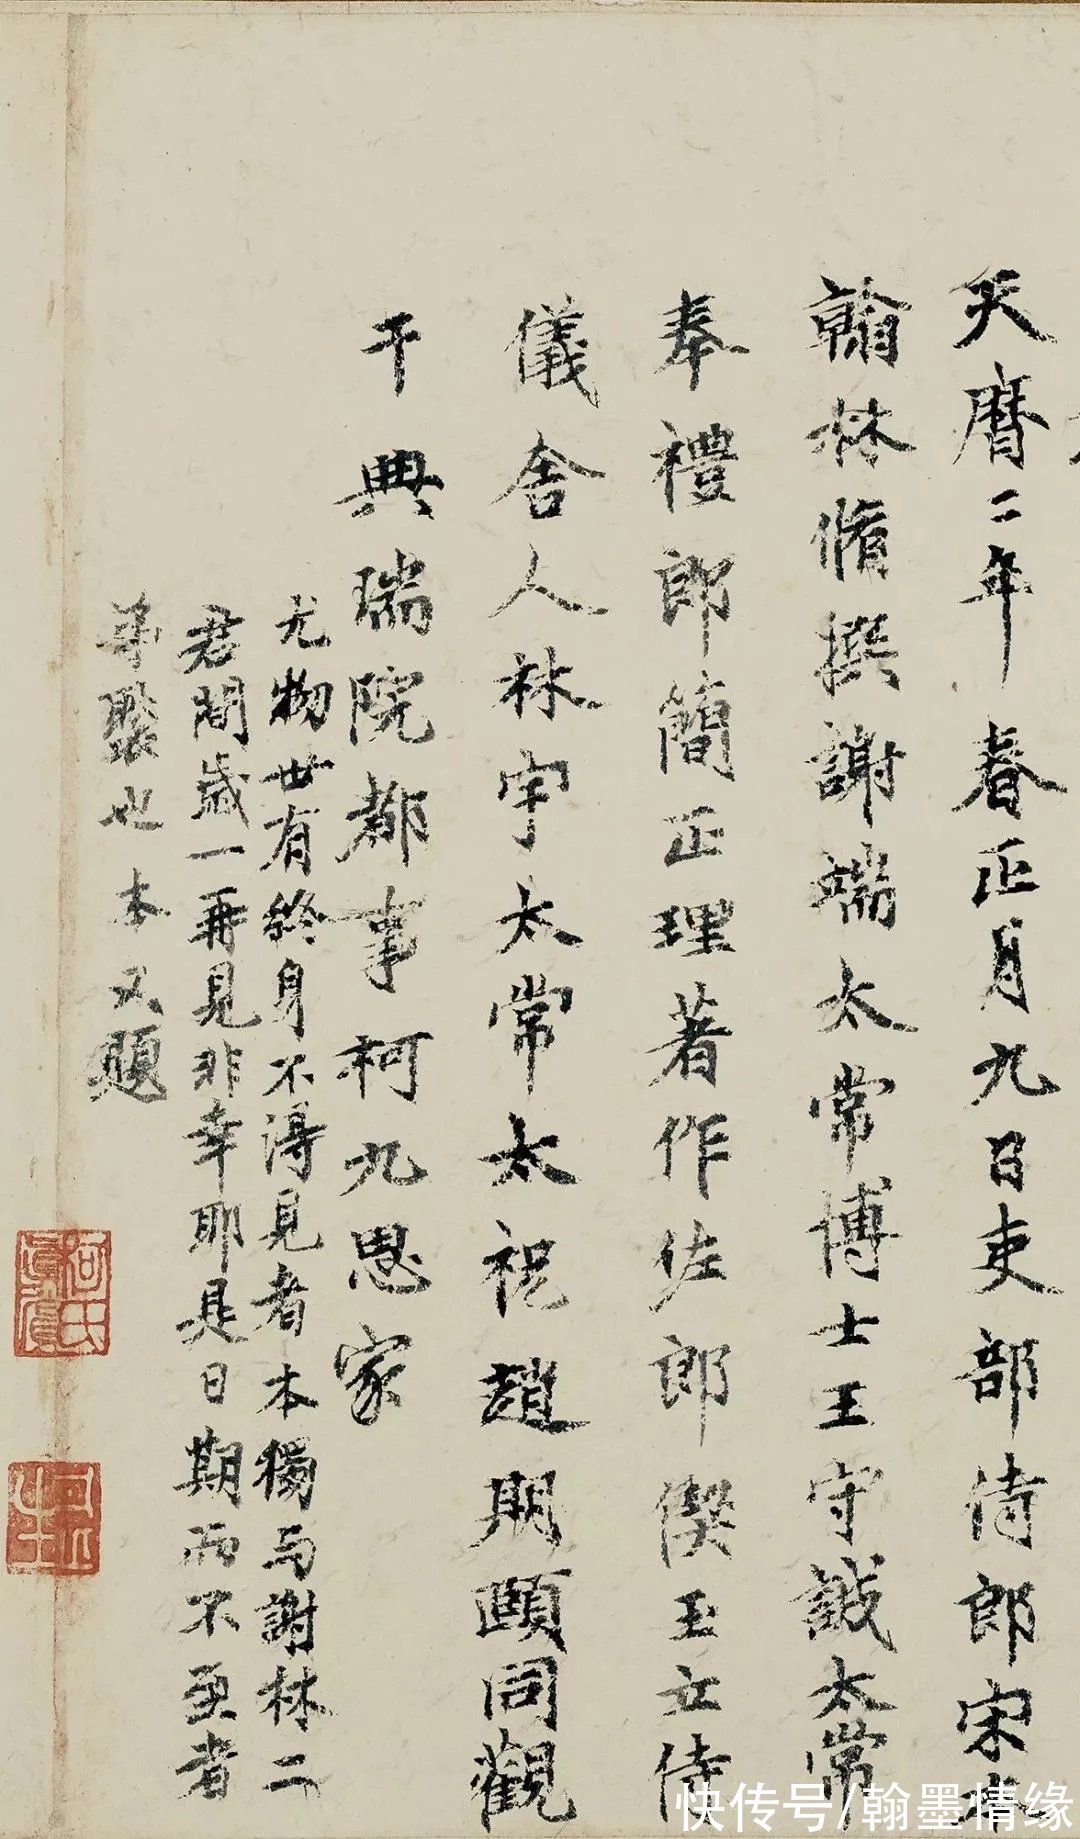 天曆二年春正月九日吏部侍郎宋本
翰林脩撰謝端太常博士王守誠太常
奉禮郎簡正理著作佐郎偰玉立侍
儀舍人林宇太常太祝趙期頤同觀
于典瑞院都事柯九思家
尤物世有終身不得見者本獨与謝林二
君間歲一再見非幸耶是日期而不至者
也本又題
柯氏真賞
快传号/翰墨情缘